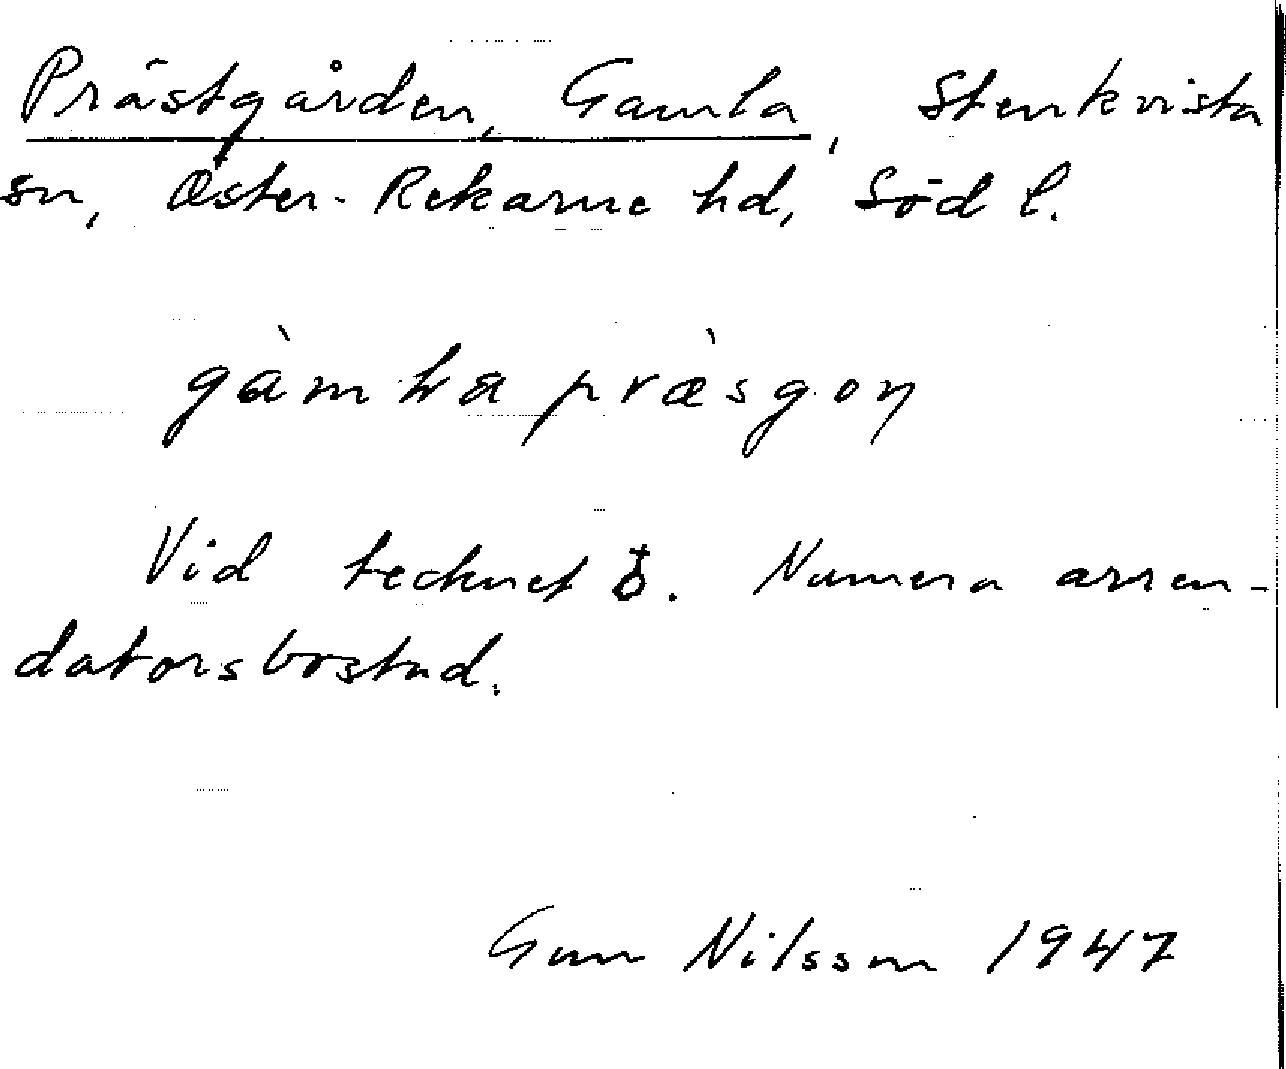 Prästgården, Gamla, Stenkvista
sn, Öster-Rekarne hd, Söd l.
gàmɫa præ̀sgoṇ
Vid tecknet ♁. Numera arren-
datorsbostad.
Gun Nilsson 1947